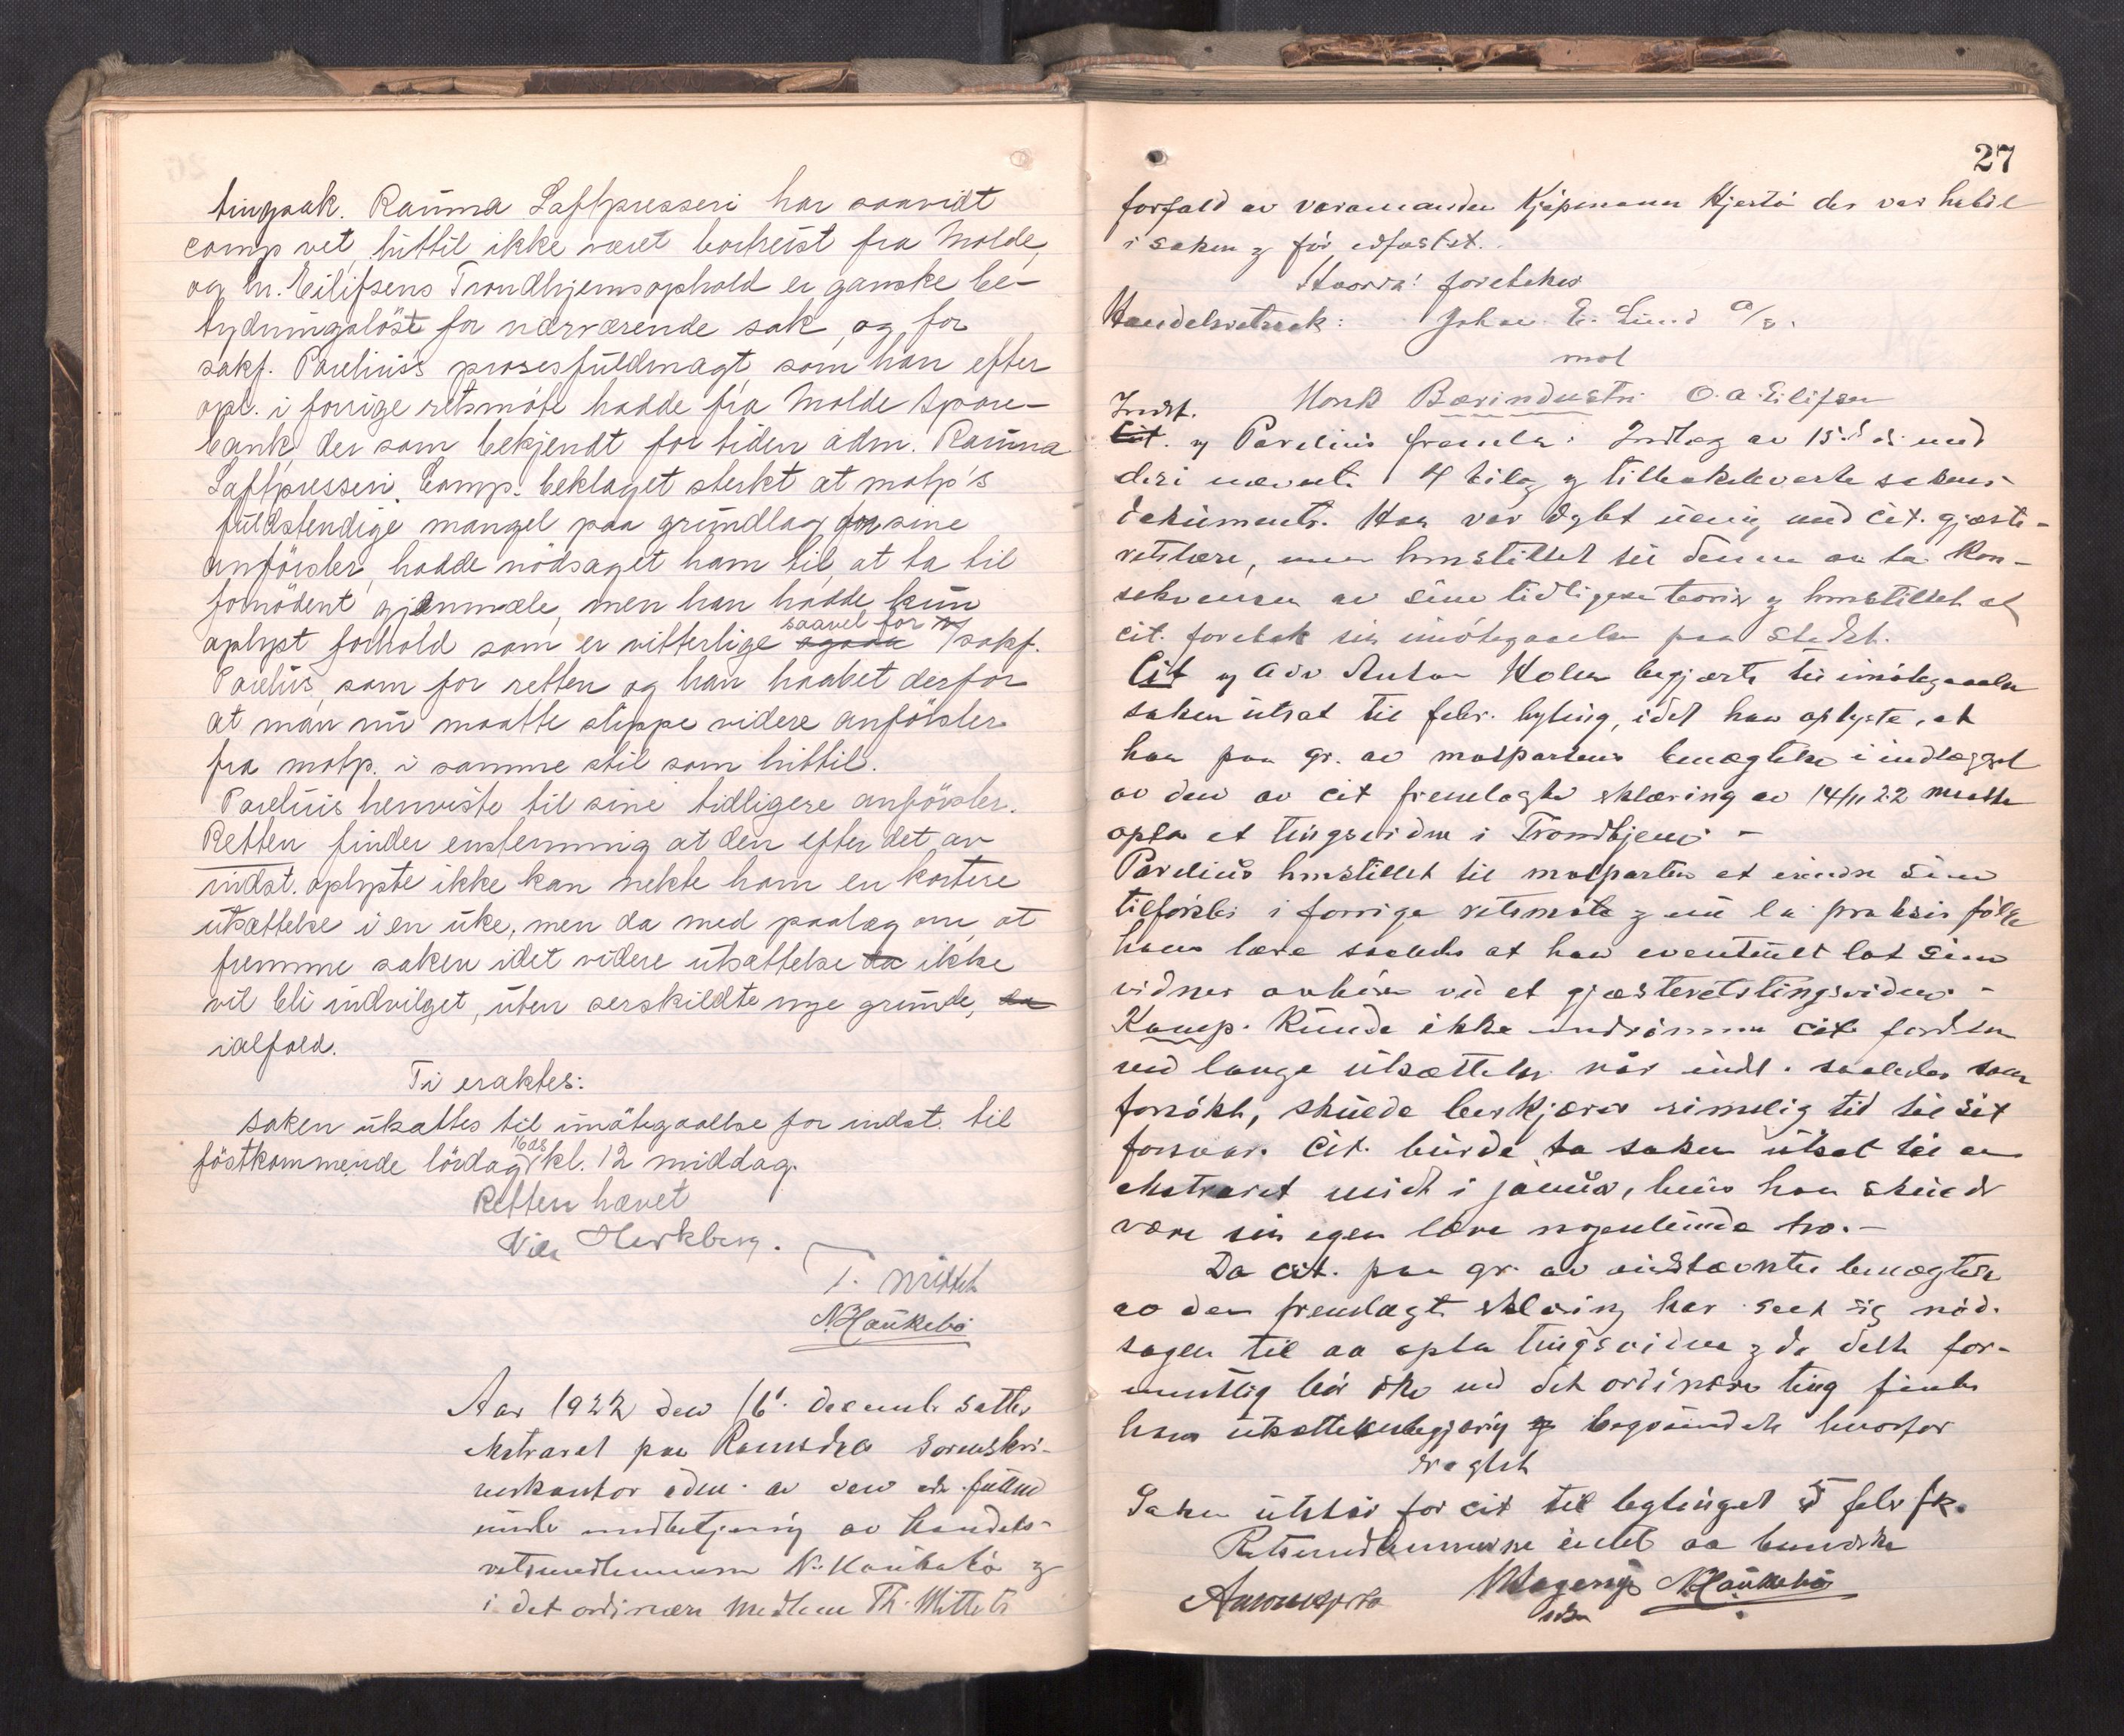 tingsak. Rauma Saftpresseri har saavidt
comp vet, hittil ikke været bortreist fra Molde,
og hr. Eilifsens Trondhjemsophold er ganske be-
tydningsløst for nærværende sak, og for
sakf. Parelius's prosesfuldmagt som han efter
opl. i forrige retsmøte hadde fra Molde Spare-
bank, der som bekjendt for tiden adm. Rauma
Saftpresseri. Comp. beklaget sterkt at motp's
fuldstendige mangel paa grundlag for sine
anførsler, hadde nødsaget ham til, at ta til
fornødent gjenmæle, men han hadde kun
oplyst forhold som er vitterlige saavel for sakf.
Parelius, som for retten og han haabet derfor
at man nu maatte slippe videre anførsler
fra motp. i samme stil som hittil.
Parelius henviste til sine tidligere anførsler.
Retten finder enstemmig at den efter det av
indst. oplyste ikke kan nekte ham en kortere
utsættelse i en uke, men da med paalæg om, at
fremme saken idet videre utsættelse da ikke
vil bli indvilget, uten serskildte nye grunde, da
ialfald.
Ti eraktes:
saken utsattes til imøtegaaelse for indst. til
føstkommende lørdag 16 ds kl. 12 middag.
Retten hævet
Nils Herkberg.
T. Mittet
N. Haukebø
Aar 1922 den 16' decembr sattes
ekstraret paa Romsdal sorenskri-
verkontor adm. av den edsv. fuldm
under medbetjening av handels-
retsmedlemmene N. Haukebø og
i det ordinære medlem Th. Mittets
27
forfald av varamanden Kjøpmann Hjertø der var habil
i saken og før edfæstet.
Hvorpaa foretokes
Handelsretssak: Johan E. Lund a/s.
mot
Norsk Bærindustri O. A. Eilifsen
Indst.
Cit. v Parelius fremla: Indlæg av 15. ds. med
deri nævnte 4 bilag og tilbakeleverte sakens
dokumenter. Han var dypt uenig med cit. gjæste-
retslære, men henstillet til denne aa ta kon-
sekvensen av sine tidligere teorier og henstillet at
cit. foretok sin imøtegaaelse paa stedet.
Cit v adv Anton Holen begjærte til imøtegaaelse
saken utsat til febr. byting, idet han oplyste, at
han paa gr. av motpartens benægtelse i indlægget
av den av cit fremlagte erklæring av 14/11 22 maatte
opta et tingsvidne i Trondhjem. -
Parelius henstillet til motparten at erindre sine
tilførsler i forrige retsmøte og nu la praksis følge
hans lære saaledes at han eventuelt lot sine
vidner avhøre ved et gjæsteretstingsvidne. -
Komp. kunde ikke indrømme cit. fordelen
ved lange utsættelser når indst. saaledes som
forsøkt, skulde berkjæres rimelig tid til sit
forsvar. Cit. burde ta saken utsat til en
ekstraret midt i januar, hvis han skulde
være sin egen lære nogenlunde tro. -
Da cit. paa gr. av indstævntes benægtelse
av den fremlagte erklæring har seet sig nød-
saget til aa opta tingsvidne og da dette for-
mentlig bør ske ved det ordinære ting findes
hans utsættelsesbegjæring begrundet hvorfor
eragtet
Saken utstaar for cit til bytinget i febr fk.
Retsmedlemmerne intet aa bemerke
N. Haukebø